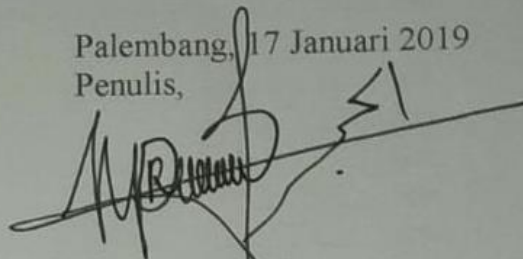 Palembang, 17 Januari 2019
Penulis,